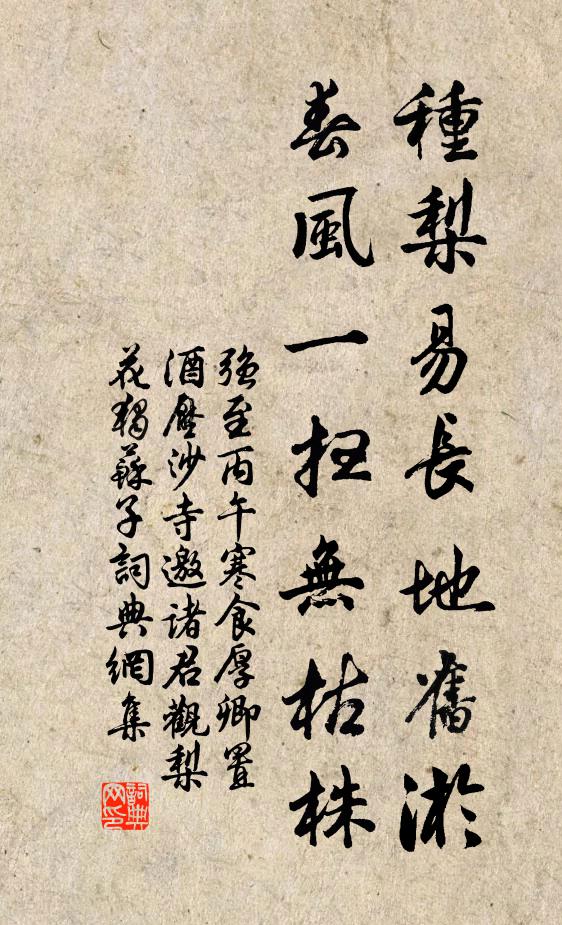 種梨易長地舊淤
春風一抂無枯株
強至丙午寒食厚卿置
酒壓沙寺邀諸君觀梨
花獨蘇子詞典網集
詞典
网印